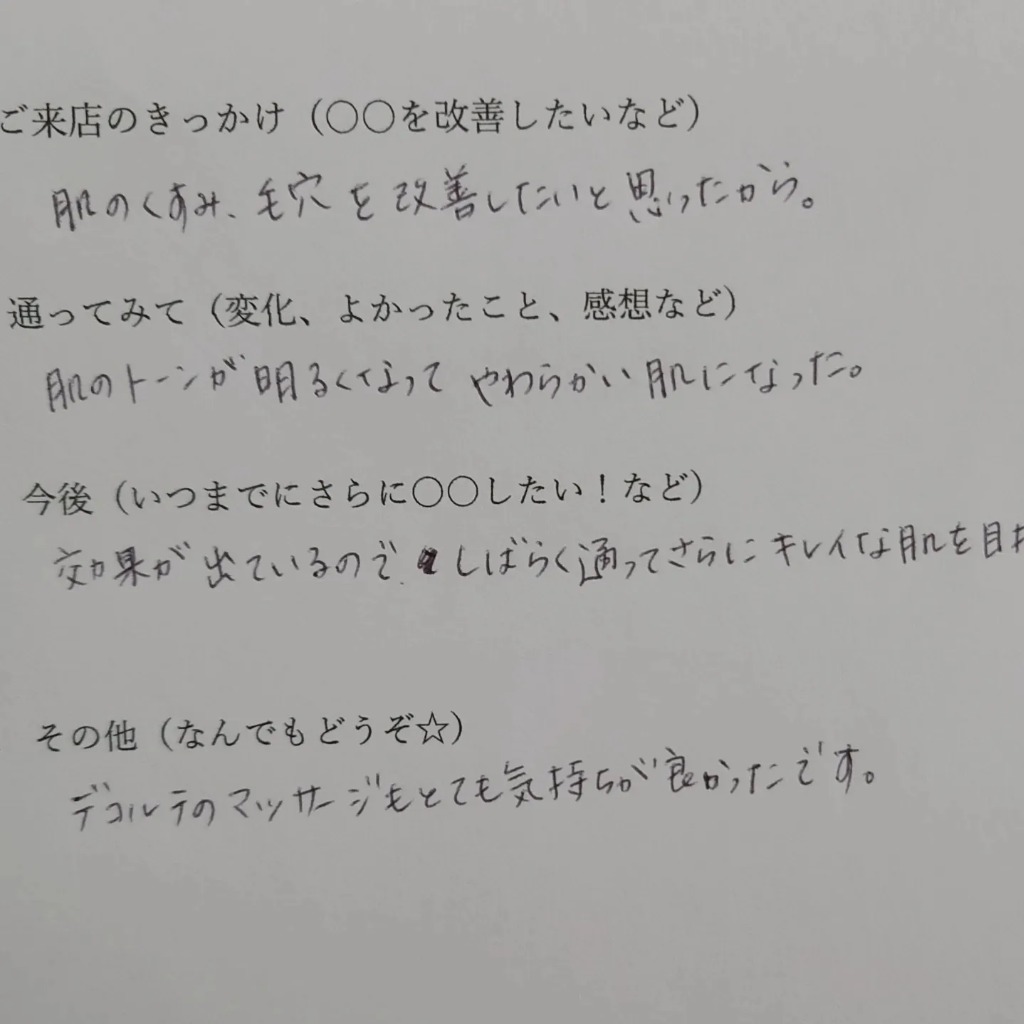 ご来店のきっかけ（〇〇を改善したいなど）
肌のくすみ、毛穴を改善したいと思ったから。
通ってみて（変化、よかったこと、感想など）
肌のトーンが明るくなって やわらかい肌になった。
今後（いつまでにさらに〇〇したい！など）
効果が出ているので、しばらく通ってさらにキレイな肌を目
その他（なんでもどうぞ☆）
デコルテのマッサージもとても気持ちが良かったです。